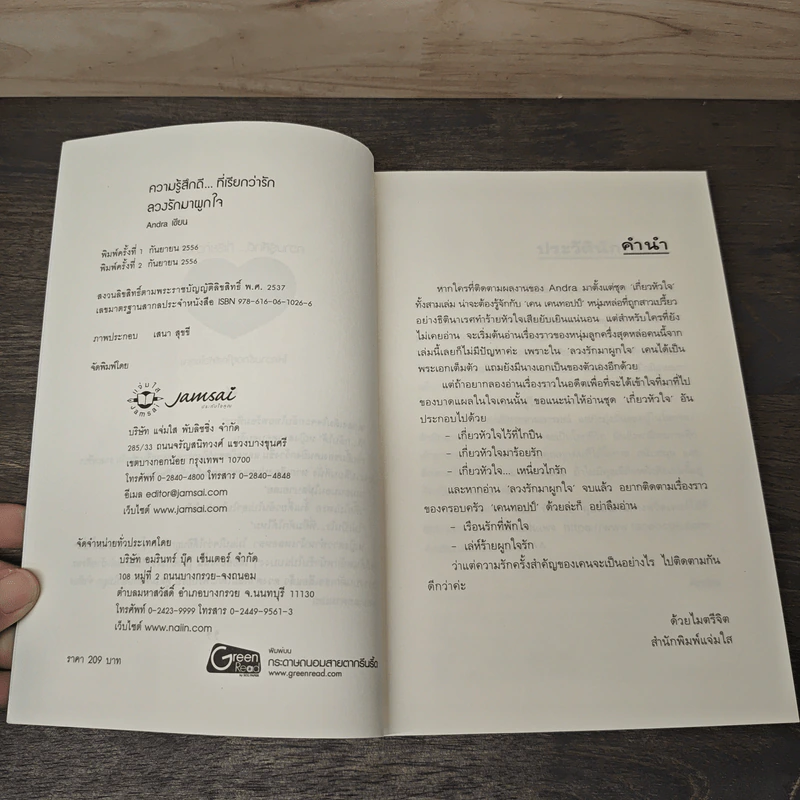 ความรู้สึกดี... ที่เรียกว่ารัก
ลวงรักมาผูกใจ
Andra เขียน
พิมพ์ครั้งที่ 1 กันยายน 2556
พิมพ์ครั้งที่ 2 กันยายน 2556
สงวนลิขสิทธิ์ตามพระราชบัญญัติลิขสิทธิ์ พ.ศ. 2537
เลขมาตรฐานสากลประจำหนังสือ ISBN 978-616-06-1026-6
ภาพประกอบ เสนา สุขขี
จัดพิมพ์โดย
แจ่มใส
Jamsai
Jamsai
บริษัท แจ่มใส พับลิชชิ่ง จำกัด
285/33 ถนนจรัญสนิทวงศ์ แขวงบางขุนศรี
เขตบางกอกน้อย กรุงเทพฯ 10700
โทรศัพท์ 0-2840-4800 โทรสาร 0-2840-4848
อีเมล editor@jamsai.com
เว็บไซต์ www.jamsai.com
จัดจำหน่ายทั่วประเทศโดย
บริษัท อมรินทร์ บุ๊ค เซ็นเตอร์ จำกัด
108 หมู่ที่ 2 ถนนบางกรวย-จงถนอม
ตำบลมหาสวัสดิ์ อำเภอบางกรวย จ.นนทบุรี 11130
โทรศัพท์ 0-2423-9999 โทรสาร 0-2449-9561-3
เว็บไซต์ www.naiin.com
ราคา 209 บาท
Green Read
พิมพ์บน
กระดาษถนอมสายตากรีนรี้ด
www.greenread.com
คำนำ
หากใครที่ติดตามผลงานของ Andra มาตั้งแต่ชุด 'เกี่ยวหัวใจ'
ทั้งสามเล่ม น่าจะต้องรู้จักกับ 'เคน เคนทอปป์' หนุ่มหล่อที่ถูกสาวเปรี้ยว
อย่างธิตินาเรศทำร้ายหัวใจเสียยับเยินแน่นอน แต่สำหรับใครที่ยัง
ไม่เคยอ่าน จะเริ่มต้นอ่านเรื่องราวของหนุ่มลูกครึ่งสุดหล่อคนนี้จาก
เล่มนี้เลยก็ไม่มีปัญหาค่ะ เพราะใน 'ลวงรักมาผูกใจ' เคนได้เป็น
พระเอกเต็มตัว แถมยังมีนางเอกเป็นของตัวเองอีกด้วย
แต่ถ้าอยากลองอ่านเรื่องราวในอดีตเพื่อที่จะได้เข้าใจที่มาที่ไป
ของบาดแผลในใจเคนนั้น ขอแนะนำให้อ่านชุด 'เกี่ยวหัวใจ' อัน
ประกอบไปด้วย
- เกี่ยวหัวใจไว้ที่ไกปืน
- เกี่ยวหัวใจมาร้อยรัก
- เกี่ยวหัวใจ... เหนี่ยวไกรัก
และหากอ่าน 'ลวงรักมาผูกใจ' จบแล้ว อยากติดตามเรื่องราว
ของครอบครัว 'เคนทอปป์' ด้วยล่ะก็ อย่าลืมอ่าน
- เรือนรักที่พักใจ
- เล่ห์ร้ายผูกใจรัก
ว่าแต่ความรักครั้งสำคัญของเคนจะเป็นอย่างไร ไปติดตามกัน
ดีกว่าค่ะ
ด้วยไมตรีจิต
สำนักพิมพ์แจ่มใส